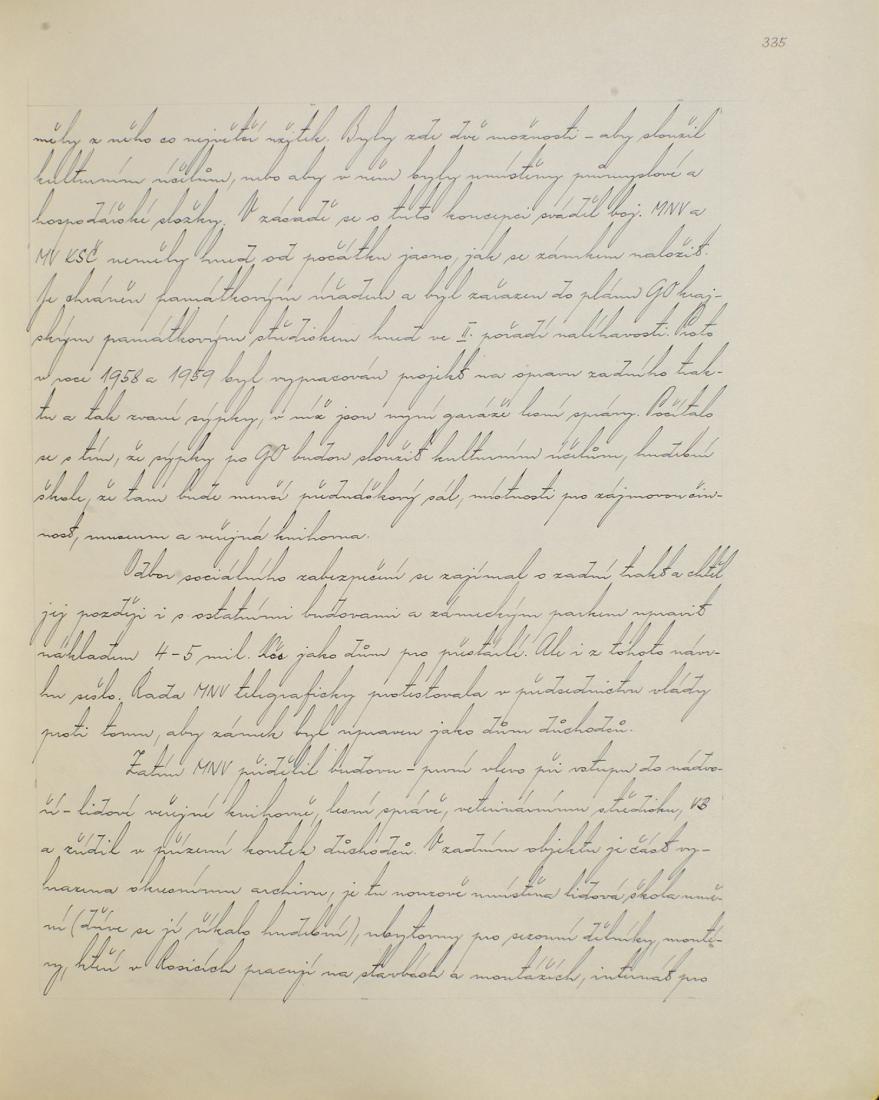 335
měly z něho co největší užitek. Byly zde dvě možnosti – aby sloužil
kulturním účelům, nebo aby v něm byly umístěny průmyslové a
hospodářské složky. V zásadě se o tuto koncepci sváděl boj. MNV a
MV KSČ neměly hned od počátku jasno, jak se zámkem naložit.
Je chráněn památkovým úřadem a byl zařazen do plánu GO kraj-
ským památkovým střediskem hned ve II. pořadí naléhavosti. Proto
v roce 1958 a 1959 byl vypracován projekt na opravu zadního trak-
tu a tak zvané sýpky, v níž jsou nyní garáže lesní správy. Počítalo
se s tím, že sýpky po GO budou sloužit kulturním účelům, hudební
škole, že tam bude menší přednáškový sál, místnosti pro zájmovou čin-
nost, museum a veřejná knihovna.
Odbor sociálního zabezpečení se zajímal o zadní trakt a chtěl
jej později i s ostatními budovami a zámeckým parkem upravit
nákladem 4–5 mil. Kčs jako dům pro přestárlé. Ale i z tohoto návr-
hu sešlo. Rada MNV telegraficky protestovala v předsednictvu vlády
proti tomu, aby zámek byl upraven jako dům důchodců.
Zatím MNV přidělil budovu – první vlevo při vstupu do nádvo-
ří – lidové veřejné knihovně, lesní správě, veterinárnímu středisku, VB
a zřídil v přízemí koutek důchodců. V zadním objektu je část vy-
hrazena okresnímu archivu, je tu nouzově umístěna lidová škola umě-
ní (dříve se jí říkalo hudební), ubytovny pro sezonní dělníky, monté-
ry, kteří v Rosicích pracují na stavbách a montážích, internát pro